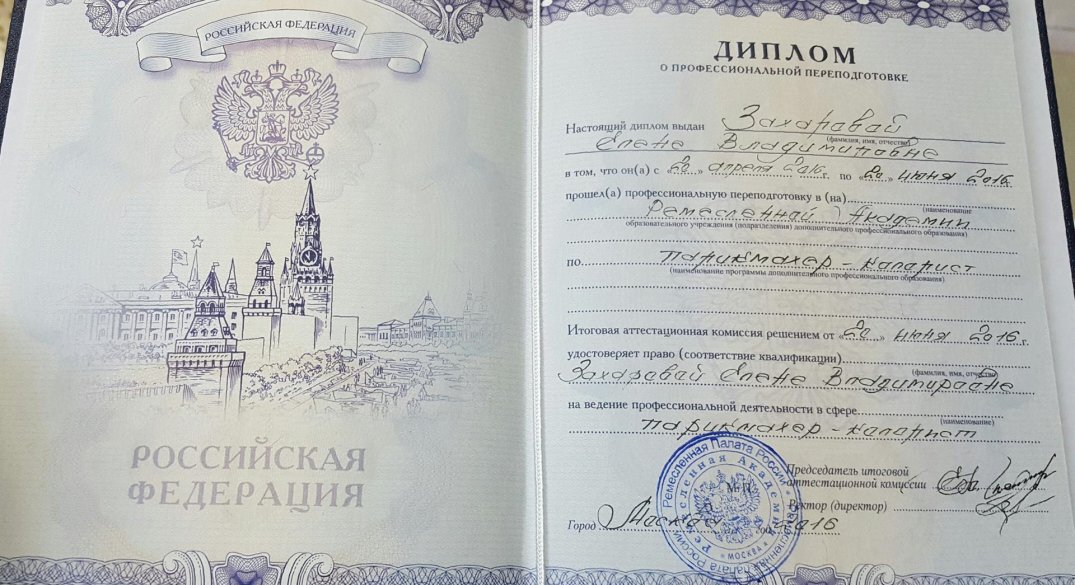 РОССИЙСКАЯ ФЕДЕРАЦИЯ
РОССИЙСКАЯ
ФЕДЕРАЦИЯ
ДИПЛОМ
О ПРОФЕССИОНАЛЬНОЙ ПЕРЕПОДГОТОВКЕ
Настоящий диплом выдан Захаравай
(фамилия, имя, отчество)
Елене Владимировне
в том, что он(а) с «20» апреля 2016 г. по «20» июня 2016
прошел(а) профессиональную переподготовку в (на)
(наименование
Ремесленной Академии
образовательного учреждения (подразделения) дополнительного профессионального образования)
по парикмахер-каларист
(наименование программы дополнительного профессионального образования)
Итоговая аттестационная комиссия решением от «20» июня 2016 г.
удостоверяет право (соответствие квалификации)
(фамилия, имя, отчество)
Захаравай Елене Владимировне
на ведение профессиональной деятельности в сфере
(наименование)
парикмахер-каларист
Ремесленная Палата России
Ремесленная Академия
МОСКВА
М.П.
Председатель итоговой
аттестационной комиссии
Ректор (директор)
Город Масква год 2016